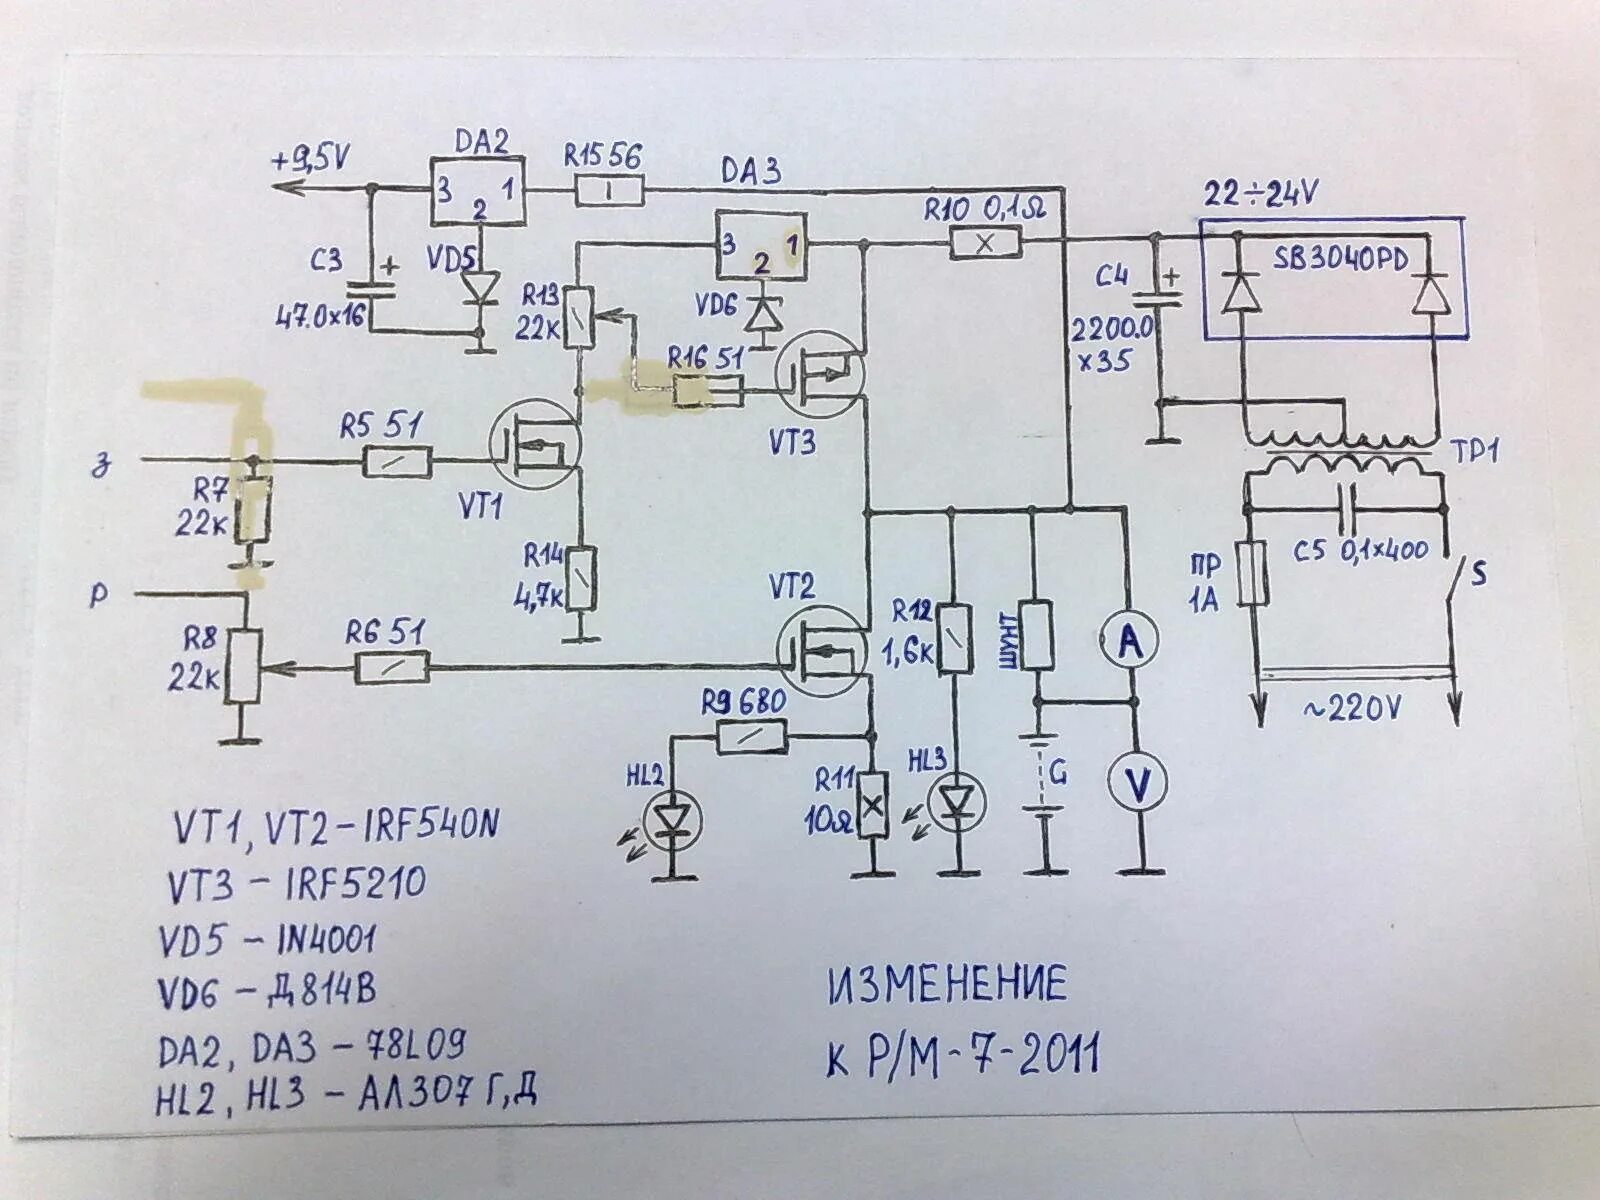 +9,5V
DA2
3 1
2
R15 56
DA3
3 1
2
R10 0,1Ω
22÷24V
SB3040PD
C3
+
47.0x16
VD5
R13
22к
VD6
R16 51
VT3
C4
+
2200.0
x35
ТР1
З
R7
22к
R5 51
VT1
R14
4,7к
Р
R8
22к
R6 51
VT2
R12
1,6к
ШУНТ
A
ПР
1А
C5 0,1x400
S
~220V
R9 680
HL2
R11
10Ω
HL3
G
V
VT1, VT2 – IRF540N
VT3 – IRF5210
VD5 – IN4001
VD6 – Д814В
DA2, DA3 – 78L09
HL2, HL3 – АЛ307 Г,Д
ИЗМЕНЕНИЕ
К Р/М-7-2011